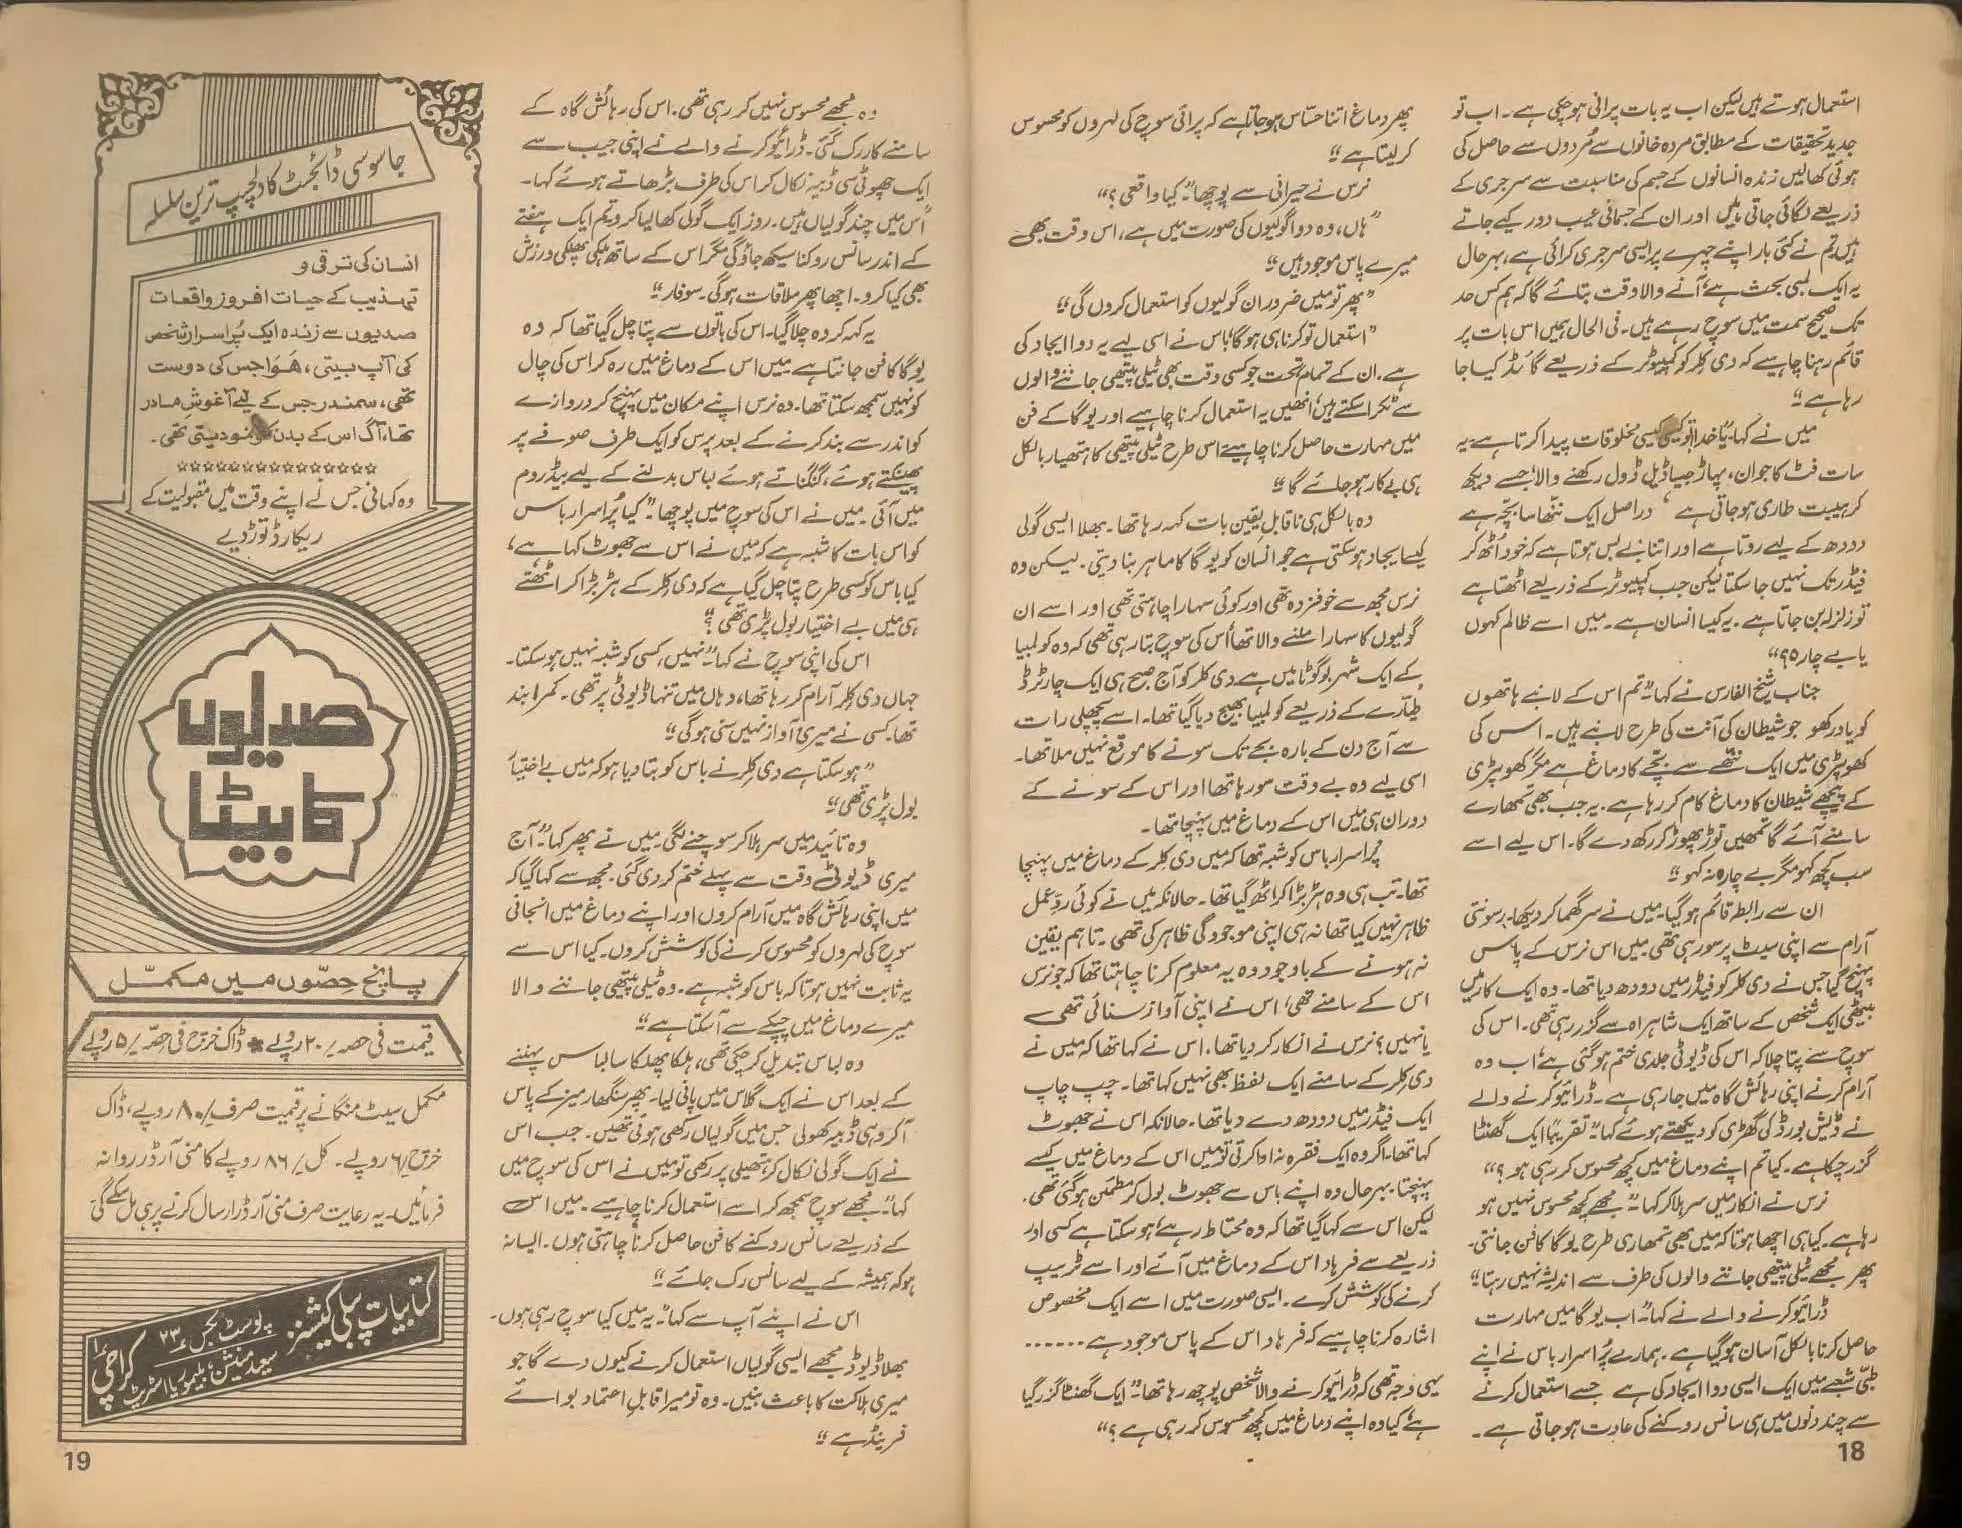 استعمال ہوتے ہیں لیکن اب یہ بات پرانی ہو چکی ہے۔ اب تو
جدید تحقیقات کے مطابق مردہ خانوں سے مُردوں سے حاصل کی
ہوئی کھالیں زندہ انسانوں کے جسم کی مناسبت سے سرجری کے
ذریعے لگائی جاتی ہیں اور ان کے جسمانی عیب دور کیے جاتے
ہیں تم نے کئی بار اپنے چہرے پر ایسی سرجری کرائی ہے، بہرحال
یہ ایک لمبی بحث ہے آنے والا وقت بتائے گا کہ ہم کس حد
تک صحیح سمت میں سوچ رہے ہیں۔ فی الحال ہمیں اس بات پر
قائم رہنا چاہیے کہ دی کلر کو کمپیوٹر کے ذریعے گائڈ کیا جا
رہا ہے"
میں نے کہا۔ "یا خدا! تو کیسی کیسی مخلوقات پیدا کرتا ہے۔ یہ
سات فٹ کا جوان، پہاڑ جیسا ڈیل ڈول رکھنے والا، جسے دیکھ
کر ہیبت طاری ہو جاتی ہے، دراصل ایک ننھا سا بچّہ ہے
دودھ کے لیے روتا ہے اور اتنا بے بس ہوتا ہے کہ خود اُٹھ کر
فیڈر تک نہیں جا سکتا لیکن جب کمپیوٹر کے ذریعے اٹھتا ہے
تو زلزلہ بن جاتا ہے۔ یہ کیسا انسان ہے۔ میں اسے ظالم کہوں
یا بے چارہ؟"
جناب شیخ الفارس نے کہا۔ "تم اس کے لانبے ہاتھوں
کو یاد رکھو جو شیطان کی آنت کی طرح لانبے ہیں۔ اس کی
کھوپڑی میں ایک ننھّے سے بچّے کا دماغ ہے مگر کھوپڑی
کے پیچھے شیطان کا دماغ کام کر رہا ہے۔ یہ جب بھی تمھارے
سامنے آئے گا تمھیں توڑ پھوڑ کر رکھ دے گا۔ اس لیے اسے
سب کچھ کہو مگر بے چارہ نہ کہو"
ان سے رابطہ قائم ہو گیا۔ میں نے سر گھما کر دیکھا۔ رسونتی
آرام سے اپنی سیٹ پر سو رہی تھی۔ میں اس نرس کے پاس
پہنچ گیا جس نے دی کلر کو فیڈر میں دودھ دیا تھا۔ وہ ایک کار میں
بیٹھی ایک شخص کے ساتھ ایک شاہراہ سے گزر رہی تھی۔ اس کی
سوچ سے پتا چلا کہ اس کی ڈیوٹی جلدی ختم ہو گئی ہے، اب وہ
آرام کرنے اپنی رہائش گاہ میں جا رہی ہے۔ ڈرائیو کرنے والے
نے ڈیش بورڈ کی گھڑی کو دیکھتے ہوئے کہا۔ "تقریباً ایک گھنٹا
گزر چکا ہے۔ کیا تم اپنے دماغ میں کچھ محسوس کر رہی ہو؟"
نرس نے انکار میں سر ہلا کر کہا۔ "مجھے کچھ محسوس نہیں ہو
رہا ہے۔ کیا ہی اچھا ہوتا کہ میں بھی تمھاری طرح یوگا کا فن جانتی۔
پھر مجھے ٹیلی پیتھی جاننے والوں کی طرف سے اندیشہ نہیں رہتا"
ڈرائیو کرنے والے نے کہا۔ "اب یوگا میں مہارت
حاصل کرنا بالکل آسان ہو گیا ہے۔ ہمارے پُراسرار باس نے اپنے
طبّی شعبے میں ایک ایسی دوا ایجاد کی ہے جسے استعمال کرنے
سے چند دنوں میں ہی سانس روکنے کی عادت ہو جاتی ہے۔
18
پھر دماغ اتنا حسّاس ہو جاتا ہے کہ پرائی سوچ کی لہروں کو محسوس
کر لیتا ہے"
نرس نے حیرانی سے پوچھا۔ "کیا واقعی؟"
"ہاں، وہ دوا گولیوں کی صورت میں ہے، اس وقت بھی
میرے پاس موجود ہیں"
"پھر تو میں ضرور ان گولیوں کو استعمال کروں گی"
"استعمال تو کرنا ہی ہو گا، باس نے اسی لیے یہ دوا ایجاد کی
ہے۔ ان کے تمام ماتحت جو کسی وقت بھی ٹیلی پیتھی جاننے والوں
سے ٹکرا سکتے ہیں، انھیں یہ استعمال کرنا چاہیے اور یوگا کے فن
میں مہارت حاصل کرنا چاہیے۔ اس طرح ٹیلی پیتھی کا ہتھیار بالکل
ہی بے کار ہو جائے گا"
وہ بالکل ہی ناقابلِ یقین بات کہہ رہا تھا۔ بھلا ایسی گولی
کیسے ایجاد ہو سکتی ہے جو انسان کو یوگا کا ماہر بنا دیتی۔ لیکن وہ
نرس مجھ سے خوفزدہ تھی اور کوئی سہارا چاہتی تھی اور اسے ان
گولیوں کا سہارا ملنے والا تھا، اُس کی سوچ بتا رہی تھی کہ وہ کولمبیا
کے ایک شہر بوگوٹا میں ہے۔ دی کلر کو آج صبح ہی ایک چارٹرڈ
طیّارے کے ذریعے کولمبیا بھیج دیا گیا تھا۔ اسے پچھلی رات
سے آج دن کے بارہ بجے تک سونے کا موقع نہیں ملا تھا۔
اسی لیے وہ بے وقت سو رہا تھا اور اس کے سونے کے
دوران ہی میں اس کے دماغ میں پہنچا تھا۔
پُراسرار باس کو شبہ تھا کہ میں دی کلر کے دماغ میں پہنچا
تھا۔ تب ہی وہ ہڑبڑا کر اٹھ گیا تھا۔ حالانکہ میں نے کوئی ردِّ عمل
ظاہر نہیں کیا تھا نہ ہی اپنی موجودگی ظاہر کی تھی۔ تاہم یقین
نہ ہونے کے باوجود وہ یہ معلوم کرنا چاہتا تھا کہ جو نرس
اس کے سامنے تھی، اس نے اپنی آواز سنائی تھی
یا نہیں؟ نرس نے انکار کر دیا تھا۔ اس نے کہا تھا کہ میں نے
دی کلر کے سامنے ایک لفظ بھی نہیں کہا تھا۔ چپ چاپ
ایک فیڈر میں دودھ دے دیا تھا۔ حالانکہ اس نے جھوٹ
کہا تھا۔ اگر وہ ایک فقرہ نہ ادا کرتی تو میں اس کے دماغ میں کیسے
پہنچتا۔ بہرحال وہ اپنے باس سے جھوٹ بول کر مطمئن ہو گئی تھی۔
لیکن اس سے کہا گیا تھا کہ وہ محتاط رہے، ہو سکتا ہے کسی اور
ذریعے سے فرہاد اس کے دماغ میں آئے اور اسے ٹریپ
کرنے کی کوشش کرے۔ ایسی صورت میں اسے ایک مخصوص
اشارہ کرنا چاہیے کہ فرہاد اس کے پاس موجود ہے......
یہی وجہ تھی کہ ڈرائیو کرنے والا شخص پوچھ رہا تھا۔ "ایک گھنٹا گزر گیا
ہے، کیا وہ اپنے دماغ میں کچھ محسوس کر رہی ہے؟"
وہ مجھے محسوس نہیں کر رہی تھی۔ اس کی رہائش گاہ کے
سامنے کار رک گئی۔ ڈرائیو کرنے والے نے اپنی جیب سے
ایک چھوٹی سی ڈبیہ نکال کر اس کی طرف بڑھاتے ہوئے کہا۔
"اُس میں چند گولیاں ہیں۔ روز ایک گولی کھا لیا کرو تم ایک ہفتے
کے اندر سانس روکنا سیکھ جاؤ گی مگر اس کے ساتھ ہلکی پھلکی ورزش
بھی کیا کرو۔ اچھا پھر ملاقات ہو گی۔ سوفار"
یہ کہہ کر وہ چلا گیا۔ اس کی باتوں سے پتا چل گیا تھا کہ وہ
یوگا کا فن جانتا ہے۔ میں اس کے دماغ میں رہ کر اس کی چال
کو نہیں سمجھ سکتا تھا۔ وہ نرس اپنے مکان میں پہنچ کر دروازے
کو اندر سے بند کرنے کے بعد پرس کو ایک طرف صوفے پر
پھینکتے ہوئے، گنگناتے ہوئے لباس بدلنے کے لیے بیڈروم
میں آئی۔ میں نے اس کی سوچ میں پوچھا۔ "کیا پُراسرار باس
کو اس بات کا شبہ ہے کہ میں نے اس سے جھوٹ کہا ہے،
کیا باس کو کسی طرح پتا چل گیا ہے کہ دی کلر کے ہڑبڑا کر اٹھتے
ہی میں بے اختیار بول پڑی تھی؟"
اس کی اپنی سوچ نے کہا۔ "نہیں، کسی کو شبہ نہیں ہو سکتا۔
جہاں دی کلر آرام کر رہا تھا، وہاں میں تنہا ڈیوٹی پر تھی۔ کمرا بند
تھا۔ کسی نے میری آواز نہیں سنی ہو گی"
"ہو سکتا ہے دی کلر نے باس کو بتا دیا ہو کہ میں بے اختیار
بول پڑی تھی"
وہ تائید میں سر ہلا کر سوچنے لگی۔ میں نے پھر کہا۔ "آج
میری ڈیوٹی وقت سے پہلے ختم کر دی گئی۔ مجھ سے کہا گیا کہ
میں اپنی رہائش گاہ میں آرام کروں اور اپنے دماغ میں انجانی
سوچ کی لہروں کو محسوس کرنے کی کوشش کروں۔ کیا اس سے
یہ ثابت نہیں ہوتا کہ باس کو شبہ ہے۔ وہ ٹیلی پیتھی جاننے والا
میرے دماغ میں چپکے سے آ سکتا ہے"
وہ لباس تبدیل کر چکی تھی، ہلکا پھلکا سا لباس پہننے
کے بعد اس نے ایک گلاس میں پانی لیا۔ پھر سنگھار میز کے پاس
آ کر وہی ڈبیہ کھولی جس میں گولیاں رکھی ہوئی تھیں۔ جب اس
نے ایک گولی نکال کر ہتھیلی پر رکھی تو میں نے اس کی سوچ میں
کہا۔ "مجھے سوچ سمجھ کر اسے استعمال کرنا چاہیے۔ میں اس
کے ذریعے سانس روکنے کا فن حاصل کرنا چاہتی ہوں۔ ایسا نہ
ہو کہ ہمیشہ کے لیے سانس رک جائے"
اس نے اپنے آپ سے کہا۔ "یہ میں کیا سوچ رہی ہوں۔
بھلا ڈیوڈ مجھے ایسی گولیاں استعمال کرنے کیوں دے گا جو
میری ہلاکت کا باعث بنیں۔ وہ تو میرا قابلِ اعتماد بوائے
فرینڈ ہے"
جاسوسی ڈائجسٹ کا دلچسپ ترین سلسلہ
انسان کی ترقی و
تہذیب کے حیات افروز واقعات
صدیوں سے زندہ ایک پُراسرار شخص
کی آپ بیتی، ہَوا جس کی دوست
تھی، سمندر جس کے لیے آغوشِ مادر
تھا، آگ اس کے بدن کو نمو دیتی تھی۔
☆☆☆☆☆☆☆☆☆☆☆☆☆☆☆
وہ کہانی جس نے اپنے وقت میں مقبولیت کے
ریکارڈ توڑ دیے
صدیوں
کا بیٹا
پانچ حِصّوں میں مکمّل
قیمت فی حصہ /۲۰ روپے ✽ ڈاک خرچ فی حصّہ /۵ روپے
مکمل سیٹ منگانے پر قیمت صرف /۸۰ روپے، ڈاک
خرچ /۶ روپے۔ کل /۸۶ روپے کا منی آرڈر روانہ
فرمائیں۔ یہ رعایت صرف منی آرڈر ارسال کرنے پر ہی مل سکے گی
کتابیات پبلی کیشنز پوسٹ بکس ۲۳
سعید منشن، بلیموریا اسٹریٹ کراچی ۱
19